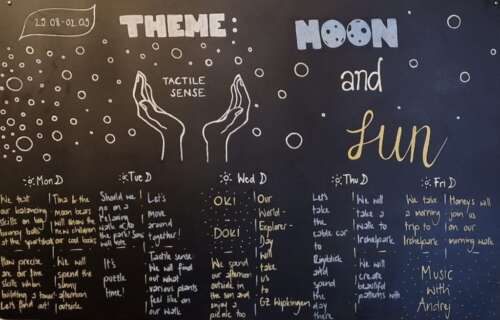 29.08-02.09
THEME:
MOON
and
sun
TACTILE
SENSE
Mon D
We test
our balancing
skills on big
bouncy balls
at the sportshall
How precise
are our fine
skills when
building a tower?
Let's find out!
Tina & the
moon bears
will show the
new children
our cool locks
We will
spend the
sunny
afternoon
outside.
Tue D
Should we
go on a
relaxing
walk or to
the park?
It's
puzzle
time!
Let's
move
around
together!
Tactile sense
We will find
out what
various plants
feel like on
our walk
Wed D
OKI
DOKI
We spend
our afternoon
outside in
the sun and
enjoy a
picnic too
Our
World-
Explorer-
Day
will
take
us
to
GZ Wipkingen
Thu D
Let's
take
the
cable car
to
and
spend
the
day
there
We will
take a
walk to
Irchelpark
We will
create
beautiful
patterns with
Fri D
We take
a morning
trip to
Irchelpark
Honey's will
join us
on our
morning walk
Music
with
Andrey